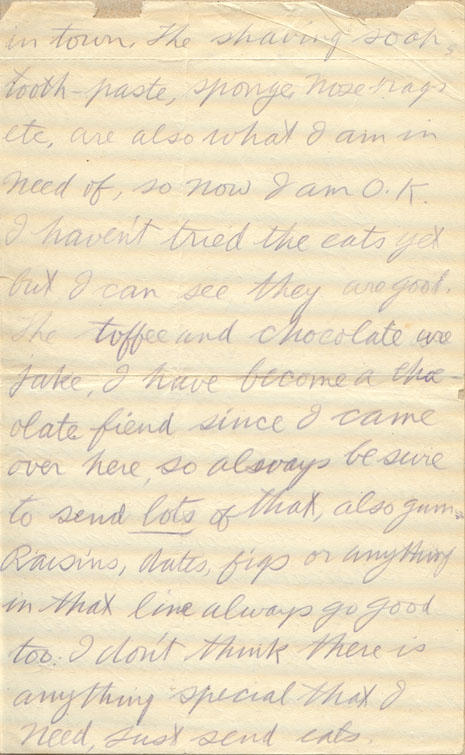 in town. The shaving soap,
tooth-paste, sponge, nose-rags
etc, are also what I am in
need of, so now I am O.K.
I haven't tried the eats yet
but I can see they are good.
The toffee and chocolate are
jake, I have become a cho-
olate fiend since I came
over here, so always be sure
to send lots of that, also gum.
Raisins, dates, figs or anything
in that line always go good
too. I don't think there is
anything special that I
need, just send eats.